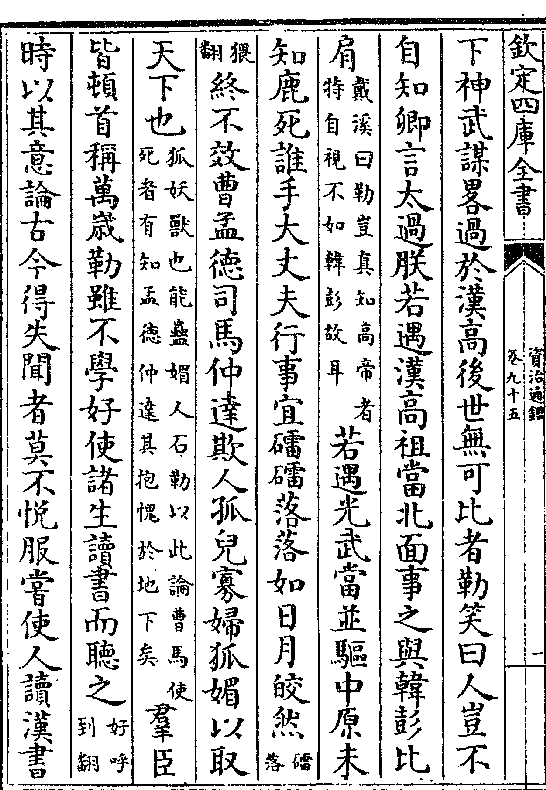 欽定四庫全書
資治通鑑
卷九十五
一
下神武謀畧過於漢高後世無可比者勒笑曰人豈不
自知卿言太過朕若遇漢高祖當北面事之與韓彭比
肩戴溪曰勒豈真知高帝者特自視不如韓彭故耳若遇光武當並驅中原未
知鹿死誰手大丈夫行事宜礌礌落落如日月皎然礌落
猥翻終不效曹孟德司馬仲達欺人孤兒寡婦狐媚以取
天下也狐妖獸也能蠱媚人石勒以此論曹馬使死者有知孟德仲達其抱愧於地下矣羣臣
皆頓首稱萬歳勒雖不學好使諸生讀書而聽之好呼到翻
時以其意論古今得失聞者莫不悦服嘗使人讀漢書